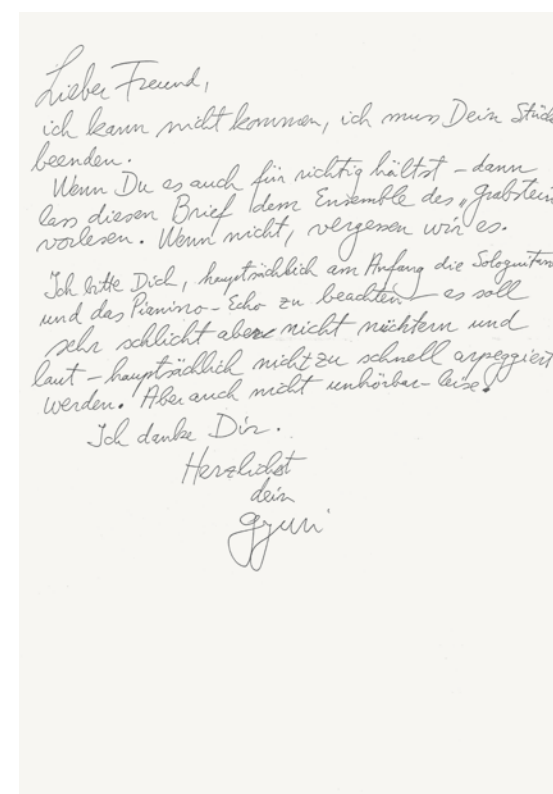 Lieber Freund,
ich kann nicht kommen, ich muss Dein Stück
beenden.
Wenn Du es auch für richtig hältst – dann
lass diesen Brief dem Ensemble des „Grabstein
vorlesen. Wenn nicht, vergessen wir es.
Ich bitte Dich, hauptsächlich am Anfang die Sologuitarre
und das Pianino-Echo zu beachten – es soll
sehr schlicht aber nicht nüchtern und
laut – hauptsächlich nicht zu schnell arpeggiert
werden. Aber auch nicht unhörbar-leise.
Ich danke Dir.
Herzlichst
dein
Gyuri